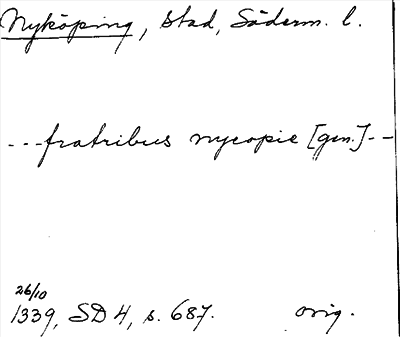 Nyköping, stad, Söderm. l.
---fratribus nycopie [gen.]--
26/10
1339, SD 4, s. 687. orig.